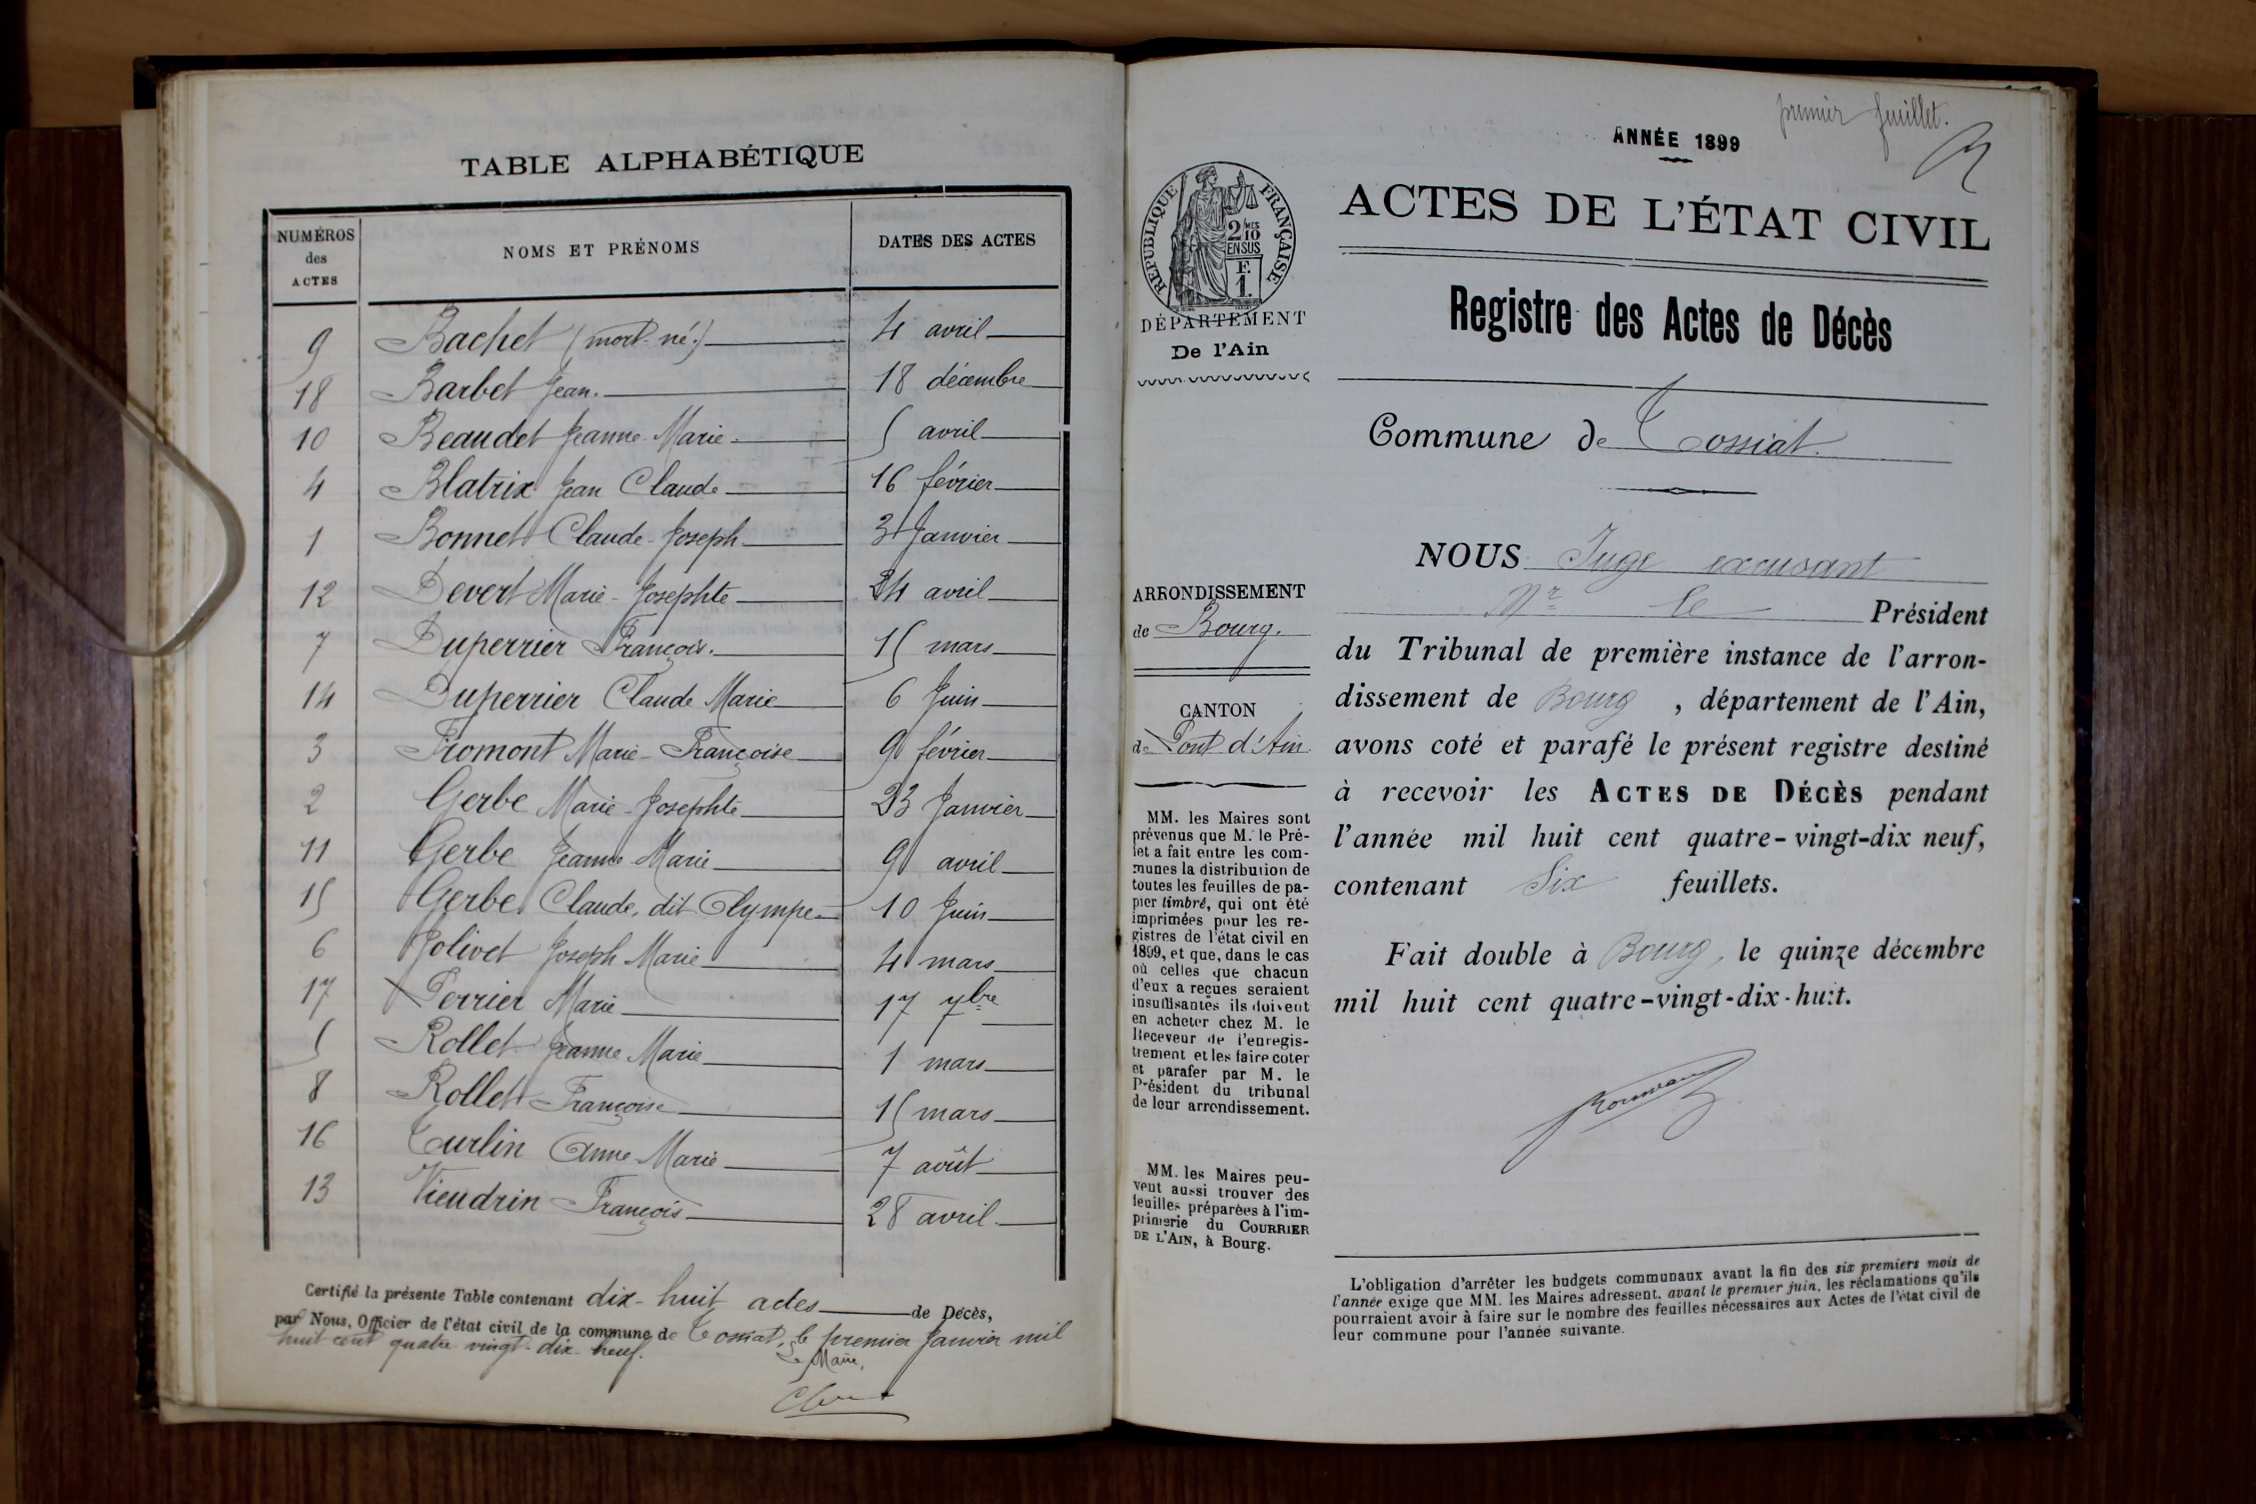 TABLE ALPHABÉTIQUE
NUMÉROS des ACTES NOMS ET PRÉNOMS DATES DES ACTES
9 Bachet (mort-né.) 4 avril
18 Barbet Jean. 18 décembre
10 Beaudet Jeanne-Marie. 5 avril
4 Blatrix Jean Claude 16 février
1 Bonnet Claude-Joseph 3 Janvier
12 Devert Marie-Josephte 24 avril
7 Duperrier François. 15 mars
14 Duperrier Claude Marie 6 Juin
3 Fromont Marie-Françoise 9 février
2 Gerbe Marie-Josephte 23 Janvier
11 Gerbe Jeanne-Marie 9 avril
15 Gerbe Claude, dit Olympe 10 Juin
6 Jolivet Joseph Marie 4 mars
17 Perrier Marie 17 7bre
5 Rollet Jeanne Marie 1 mars
8 Rollet Françoise 15 mars
16 Turlin Anne-Marie 7 août
13 Vieudrin François 28 avril
Certifié la présente Table contenant dix-huit actes de Décès,
par Nous, Officier de l'état civil de la commune de Tossiat, le premier Janvier mil
huit cent quatre vingt-dix-neuf.
Le Maire,
premier feuillet.
ANNÉE 1899
ACTES DE L'ÉTAT CIVIL
RÉPUBLIQUE FRANÇAISE
2/10 MES
EN SUS
F.
1.
DÉPARTEMENT
De l'Ain
Registre des Actes de Décès
Commune de Tossiat.
ARRONDISSEMENT
de Bourg.
CANTON
de Pont d'Ain
MM. les Maires sont
prévenus que M. le Pré-
fet a fait entre les com-
munes la distribution de
toutes les feuilles de pa-
pier timbré, qui ont été
imprimées pour les re-
gistres de l'état civil en
1899, et que, dans le cas
où celles que chacun
d'eux a reçues seraient
insuffisantes ils doivent
en acheter chez M. le
Receveur de l'enregis-
trement et les faire coter
et parafer par M. le
Président du tribunal
de leur arrondissement.
MM. les Maires peu-
vent aussi trouver des
feuilles préparées à l'im-
primerie du COURRIER
DE L'AIN, à Bourg.
NOUS Juge excusant
Mr le Président
du Tribunal de première instance de l'arron-
dissement de Bourg, département de l'Ain,
avons coté et parafé le présent registre destiné
à recevoir les ACTES DE DÉCÈS pendant
l'année mil huit cent quatre-vingt-dix neuf,
contenant Six feuillets.
Fait double à Bourg, le quinze décembre
mil huit cent quatre-vingt-dix-huit.
L'obligation d'arrêter les budgets communaux avant la fin des six premiers mois de
l'année exige que MM. les Maires adressent, avant le premier juin, les réclamations qu'ils
pourraient avoir à faire sur le nombre des feuilles nécessaires aux Actes de l'état civil de
leur commune pour l'année suivante.